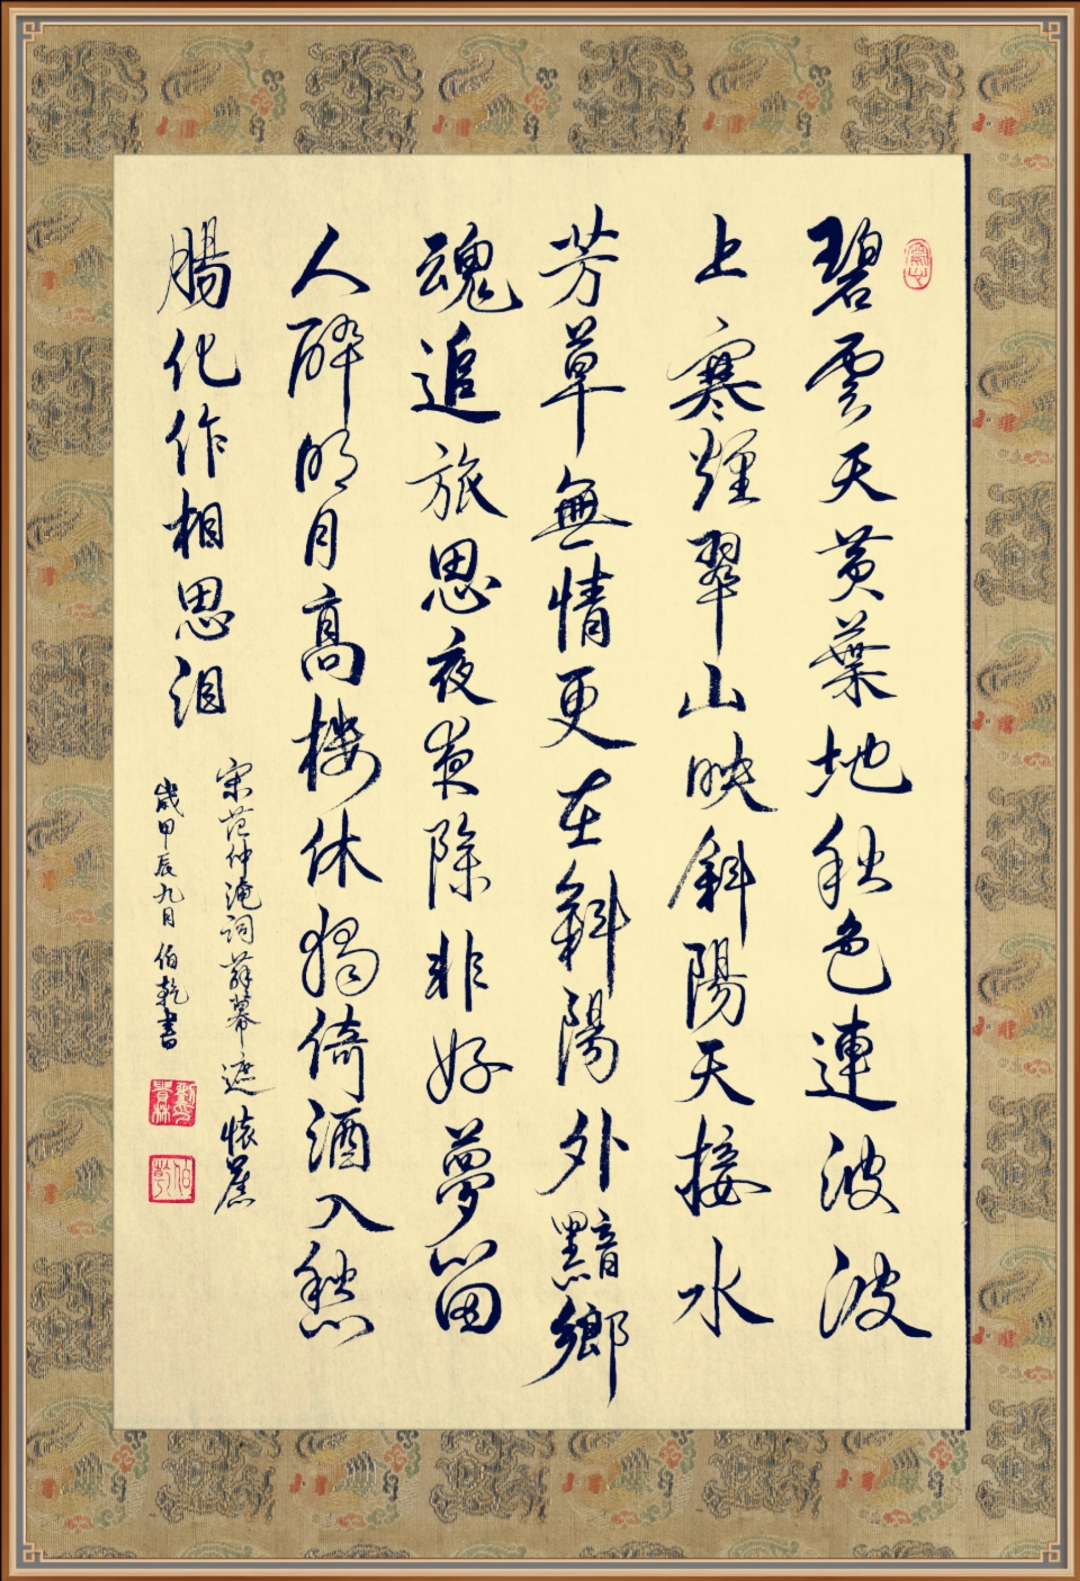 碧雲天黄葉地秋色連波波
上寒煙翠山映斜陽天接水
芳草無情更在斜陽外黯鄉
魂追旅思夜夜除非好夢留
人醉明月高楼休獨倚酒入愁
腸化作相思泪
宋范仲淹詞蘇幕遮懷舊
歲甲辰九月伯乾書
伯乾